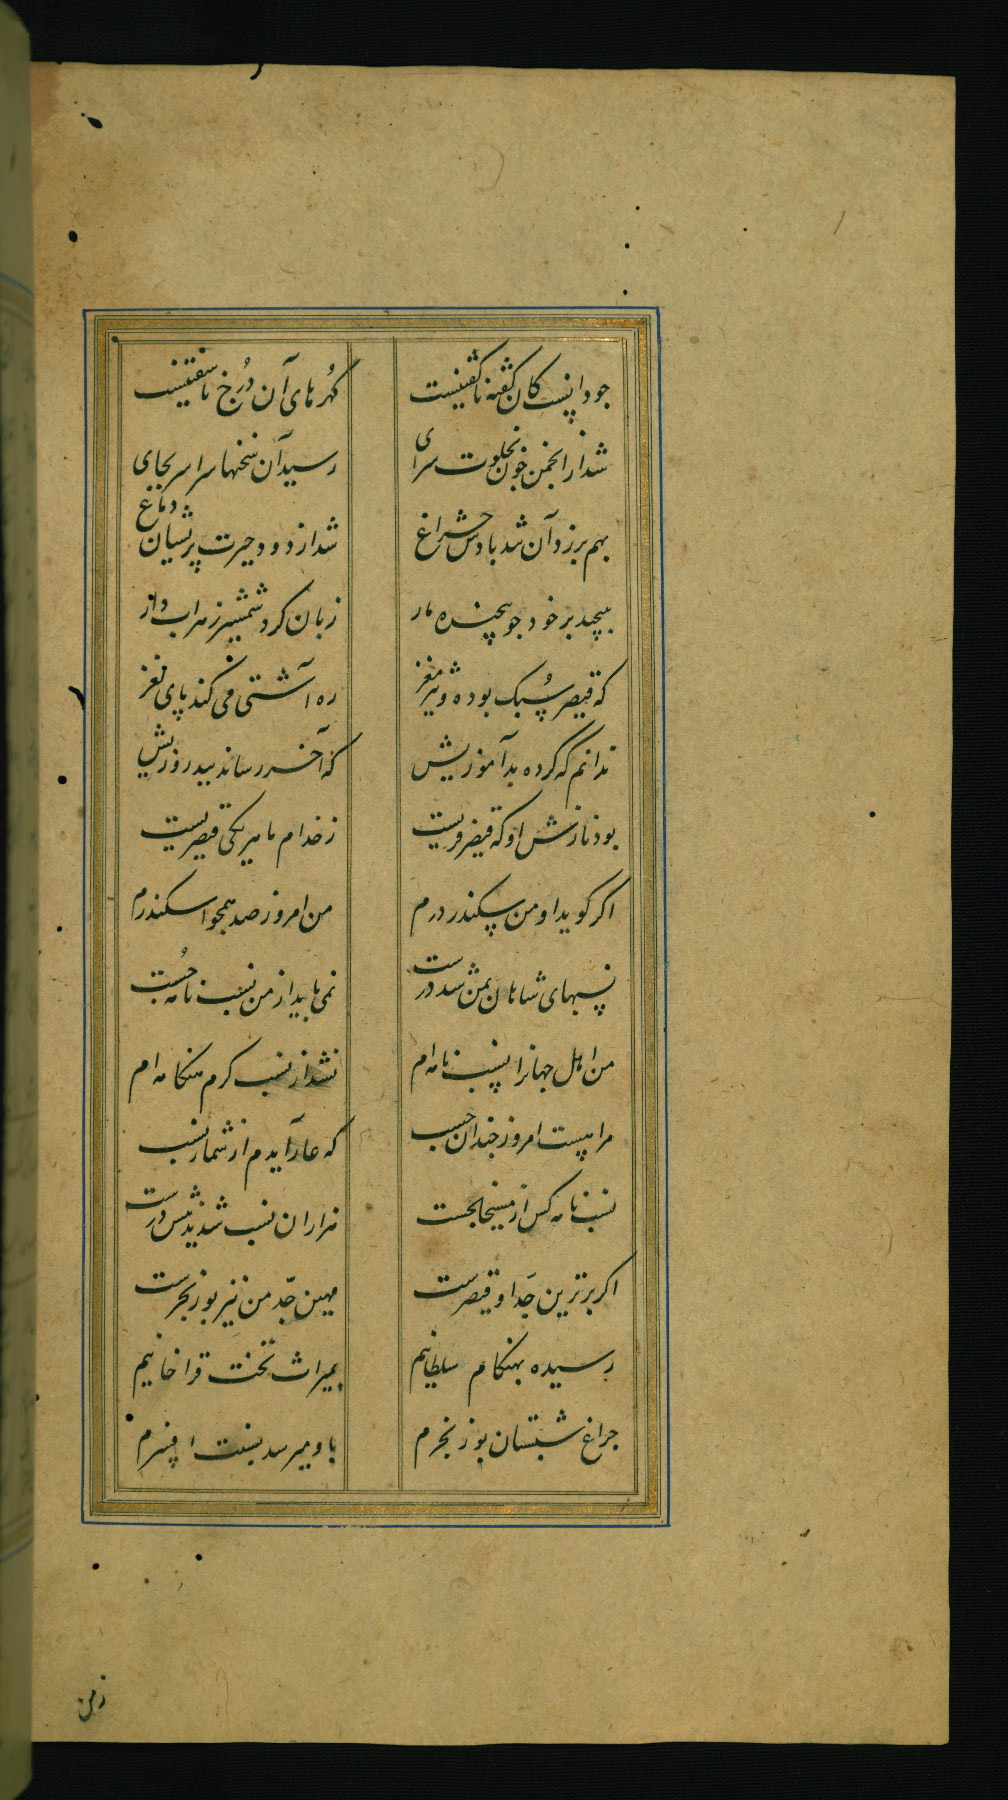 جو دانست کان گفته ناگفتنیست گهرهای آن درج ناسفتنیست
شد از انجمن چون بخلوت سرای رسید آن سخنها سراسر بجای
بهم برزد آن شد بادش چراغ شد از دود حیرت پریشان دماغ
بپیچید بر خود جو پیچنده مار زبان کرد شمشیر زهراب دار
که قیصر سبک بوده و تیز مغز ره آشتی می کند پای نغز
ندانم که کرده بدآموزیش که آخر رساند ببد روزیش
بود نازش او که قیصر فریست ز خدام ما هر یکی قیصریست
اگر گوید او من سکندر درم من امروز صد همجو اسکندرم
نسبهای شاهان بمن شد درست نمی باید از من نسب نامه جست
من اهل جهانرا نسب نامه ام نشد از نسب گرم هنگامه ام
مراهست امروز جندان حسب که عار آیدم از شمار نسب
نسب نامه کس از مسیحا نجست هزاران نسب شد بدیش درست
اگر برترین جد او قیصرست مهین جد من نیز بوزنجرست
رسیده بهنگام سلطانیم بمیراث تخت قراخانیم
جراغ شبستان بوزنجرم باو میرسد نسبت افسرم
زمن